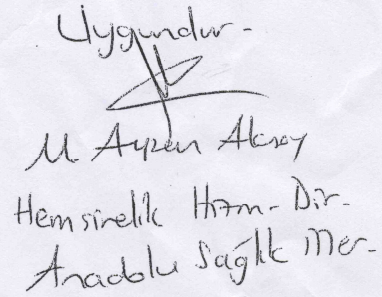 Uygundur-
M Ayzen Aksoy
Hemsirelik Hizm- Dir-
Anadolu Sağlık Mer-